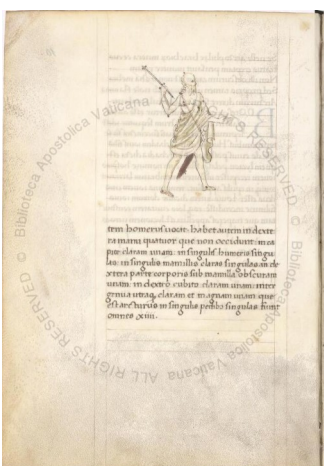 tem homerus uocat. habet autem in dext
ra manu quatuor que non occidunt. in ca
pite claram unam. in singulis humeris singu
las. in singulis mamillis claras singulas. in de
xtera parte corporis sub mamilla obscuram
unam. in dextro cubito claram unam. inter
genua utraq; claram et magnam unam que
est arcturus in singulis pedibus singulas. fiunt
omnes xiiii.
© Biblioteca Apostolica Vaticana
ALL RIGHTS RESERVED
© Biblioteca Apostolica Vaticana
ALL RIGHTS RESERVED